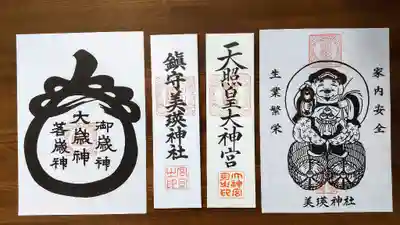 御歳神
大歳神
若歳神
鎭守美瑛神社
天照皇大神宮
家内安全
生業繁栄
美瑛神社